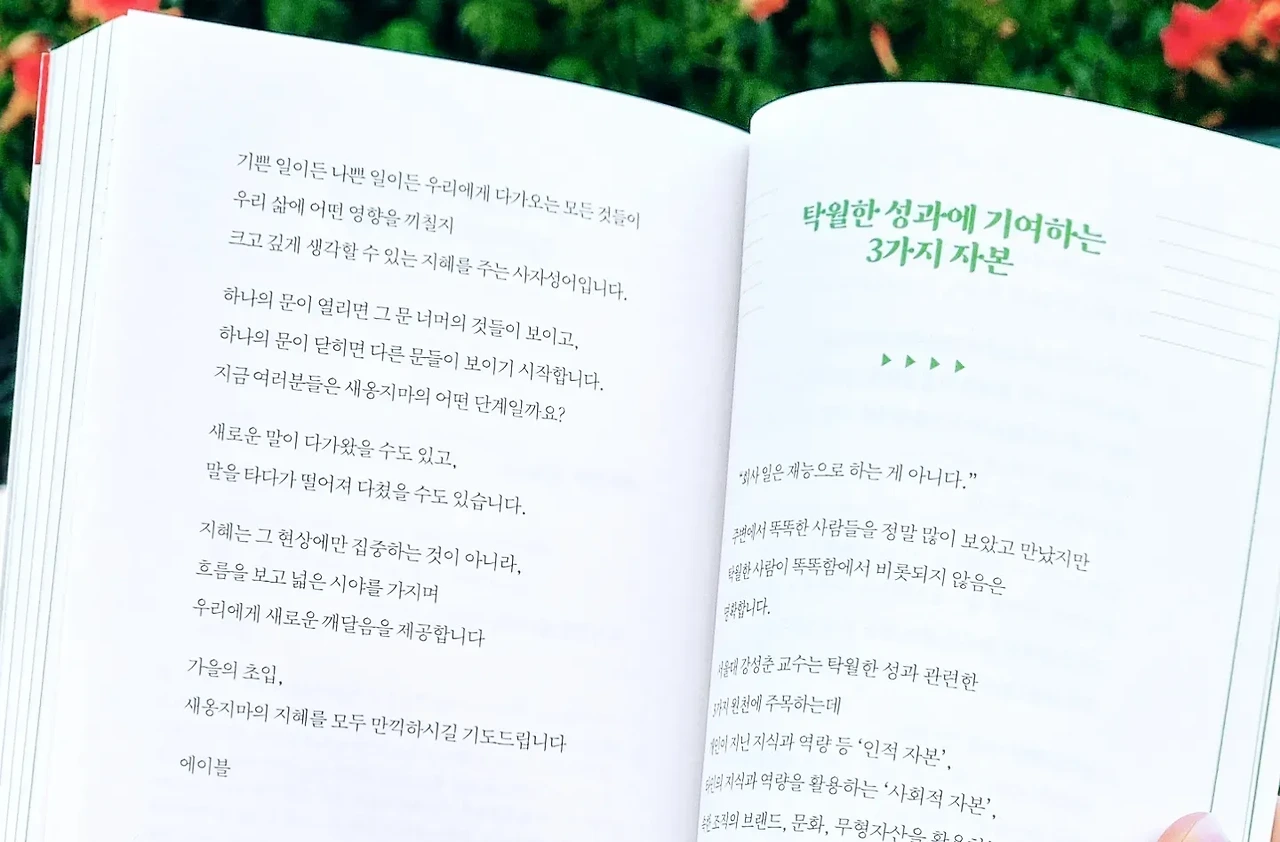 기쁜 일이든 나쁜 일이든 우리에게 다가오는 모든 것들이
우리 삶에 어떤 영향을 끼칠지
크고 깊게 생각할 수 있는 지혜를 주는 사자성어입니다.
하나의 문이 열리면 그 문 너머의 것들이 보이고,
하나의 문이 닫히면 다른 문들이 보이기 시작합니다.
지금 여러분들은 새옹지마의 어떤 단계일까요?
새로운 말이 다가왔을 수도 있고,
말을 타다가 떨어져 다쳤을 수도 있습니다.
지혜는 그 현상에만 집중하는 것이 아니라,
흐름을 보고 넓은 시야를 가지며
우리에게 새로운 깨달음을 제공합니다
가을의 초입,
새옹지마의 지혜를 모두 만끽하시길 기도드립니다
에이블
탁월한 성과에 기여하는
3가지 자본
“회사 일은 재능으로 하는 게 아니다.”
주변에서 똑똑한 사람들을 정말 많이 보았고 만났지만
탁월한 사람이 똑똑함에서 비롯되지 않음은
명확합니다.
서울대 강성춘 교수는 탁월한 성과 관련한
3가지 원천에 주목하는데
개인이 지닌 지식과 역량 등 ‘인적 자본’,
타인의 지식과 역량을 활용하는 ‘사회적 자본’,
조직의 브랜드, 문화, 무형자산을